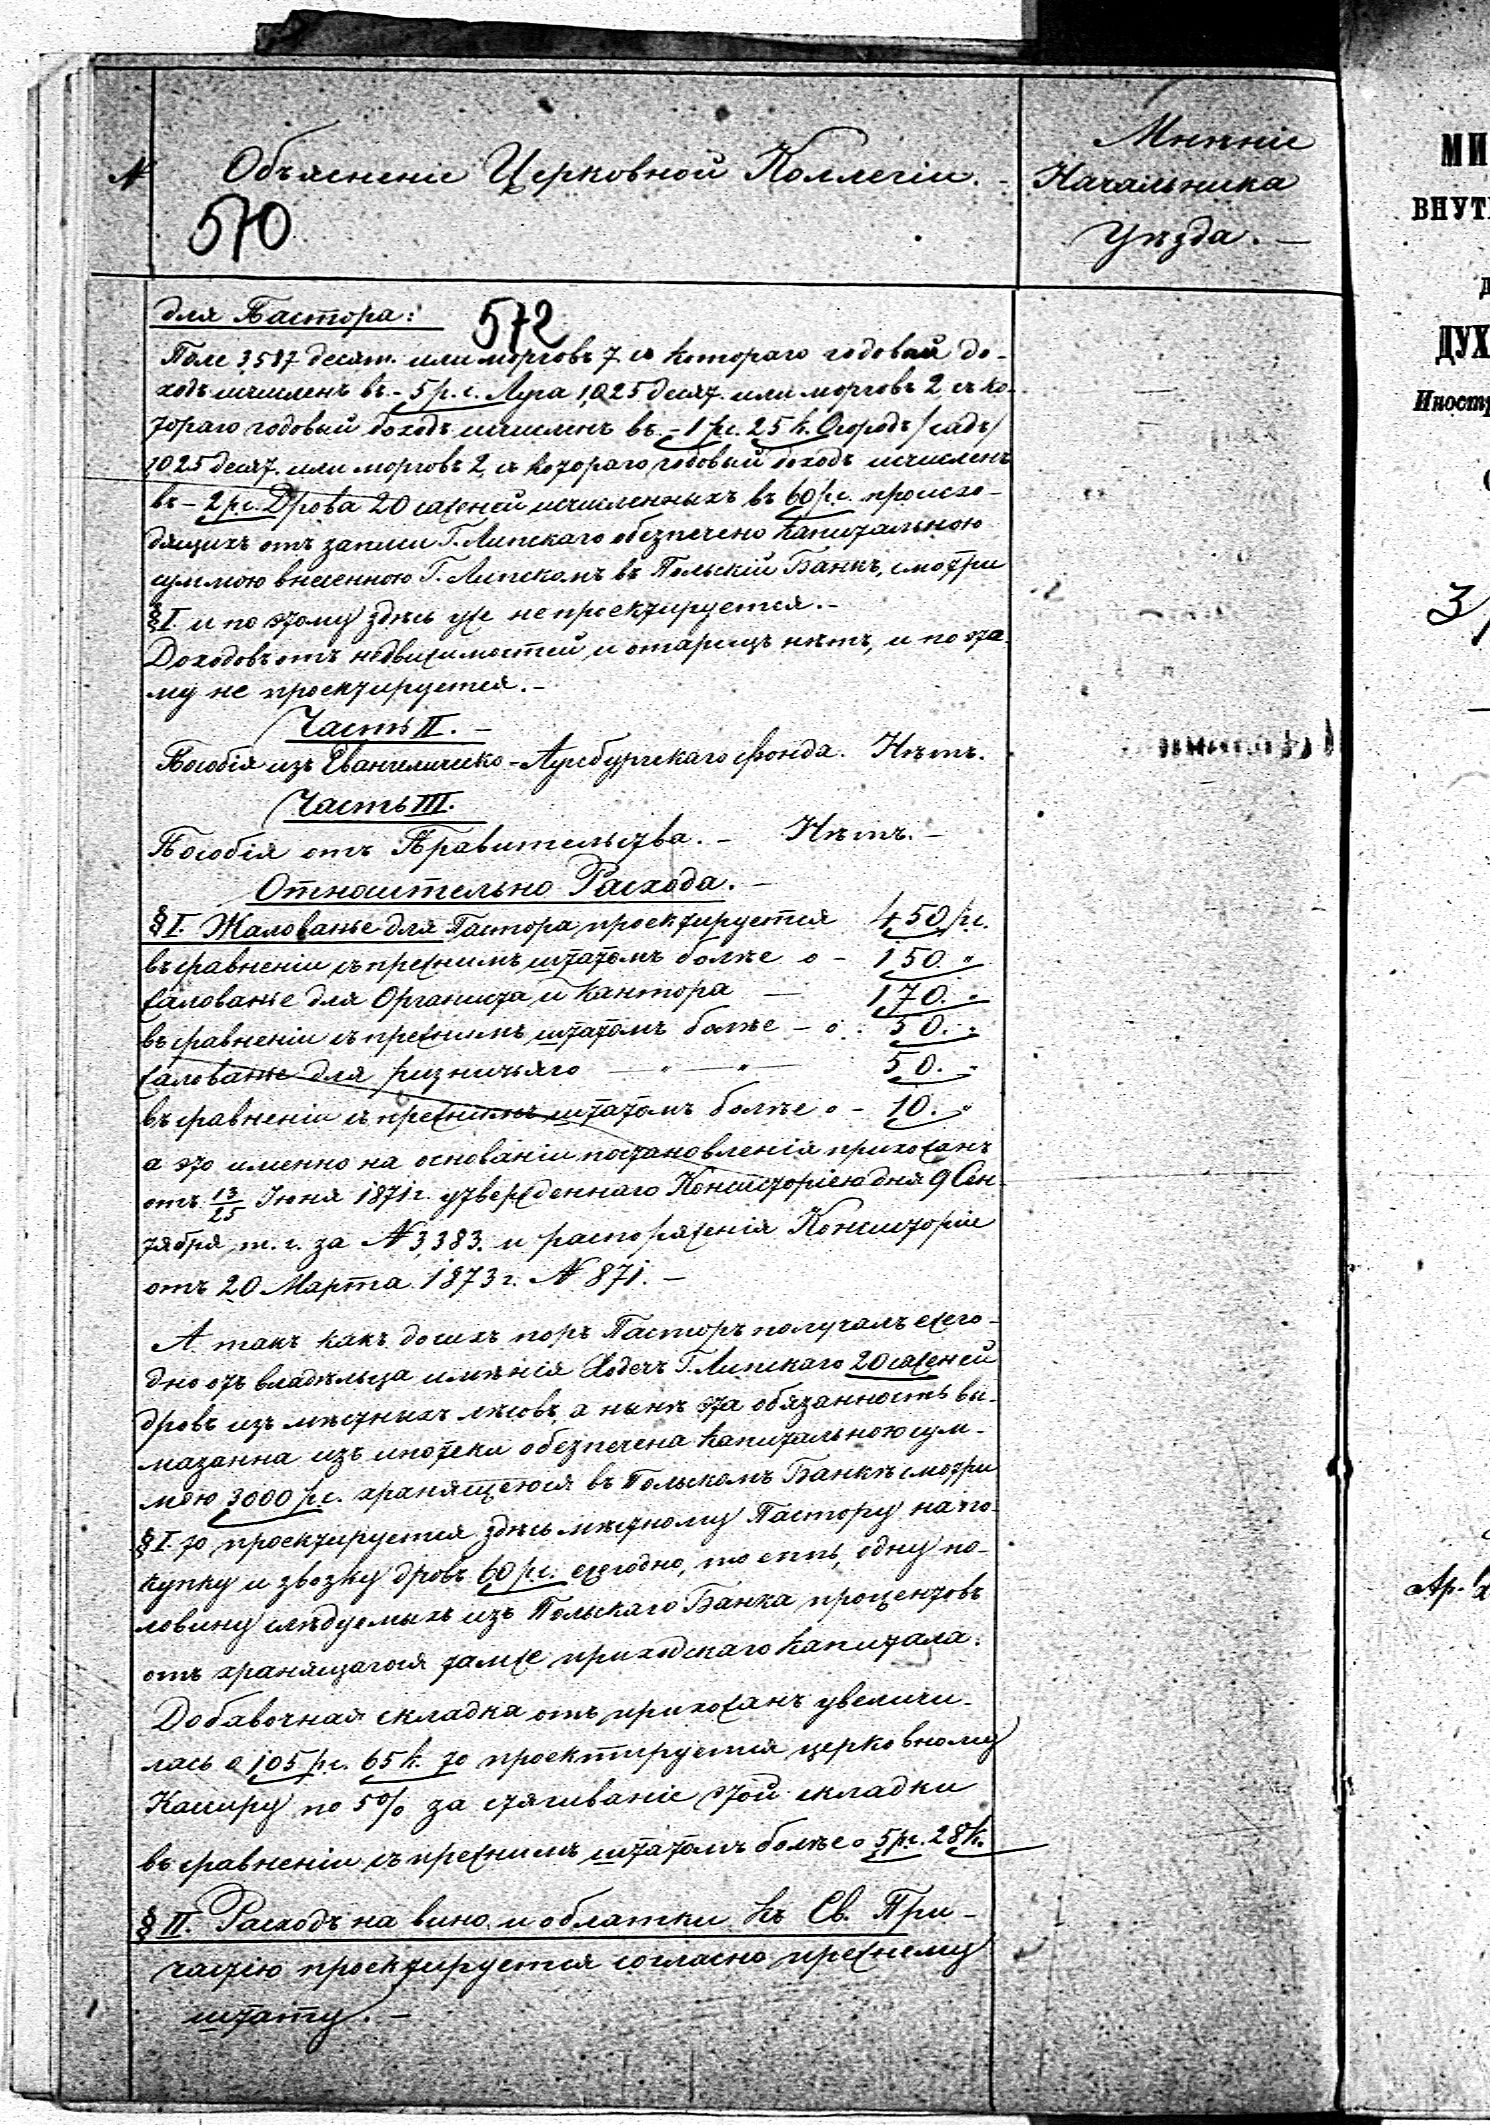 №
Объясненіе Церковной Коллегіи.-
Мнѣніе
Начальника
Уѣзда.-
570
572
для Пастора:
Поле 3,587 десят. или морговъ 7 съ котораго годовый до-
ходъ исчисленъ въ - 5 р.с. Луга 1,025 десят. или морговъ 2, съ ко-
тораго годовый доходъ исчисленъ въ - 1 рс. 25 к. Огородъ /садъ/
1,025 десят. или морговъ 2, съ котораго годовый доходъ исчисленъ
въ - 2 рс. Дрова 20 саженей исчисленныхъ въ 60 рс. происхо-
дящихъ отъ записи Г. Липскаго обезпечено капитальною
суммою внесенною Г. Липскомъ въ Польскій Банкъ, смотри
§ I. и по этому здѣсь уже не проектируется.-
Доходовъ отъ недвижимостей, и отарицъ нѣтъ, и по эта-
му не проектируется.-
Часть II.-
Пособія изъ Евангелическо-Аугсбургскаго фонда. Нѣтъ.
Часть III.
Пособія отъ Правительства.- Нѣтъ.-
Относительно Расхода.-
§ I. Жалованье для Пастора проектируется 450 рс.
въ сравненіи съ прежнимъ штатомъ болѣе о - 150. "
жалованье для Органиста и Кантора — 170. "
въ сравненіи съ прежнимъ штатомъ болѣе - о . 50. "
жалованье для ризничьяго — " — " — 50. "
въ сравненіи съ прежнимъ штатомъ болѣе о - 10. "
а это именно на основаніи постановленія прихожанъ
отъ 13/25 Іюня 1871 г. утвержденнаго Консисторіею дня 9 Сен-
тября т. г. за № 3,383. и распоряженія Консисторіи
отъ 20 Марта 1873 г. № 871.-
А такъ какъ досихъ поръ Пасторъ получалъ ежего-
дно отъ владѣльца имѣнія Ходечъ Г. Липскаго 20 саженей
дровъ изъ мѣстныхъ лѣсовъ, а нынѣ эта обязанность вы-
мазанна изъ ипотеки обезпечена капитальною сум-
мою 3000 рс. хранящеюся въ Польскомъ Банкѣ смотри
§ I. то проектируется здѣсь мѣстному Пастору на по-
купку и звозку дровъ 60 рс. ежегодно, то есть, одну по-
ловину слѣдуемыхъ изъ Польскаго Банка процентовъ
отъ хранящагося тамже приходскаго капитала.
Добавочная складка отъ прихожанъ увеличи-
лась о 105 рс. 65 к. то проектируется церковному
Касиру по 5% за стягиваніе этой складки
въ сравненіи съ прежнимъ штатомъ болѣе о 5 рс. 28 к.
§ II. Расходъ на вино и облатки къ Св. При-
частію проектируется согласно прежнему
штату.-
МИ
ВНУТ
Д
ДУХ
Иностр
Ар.